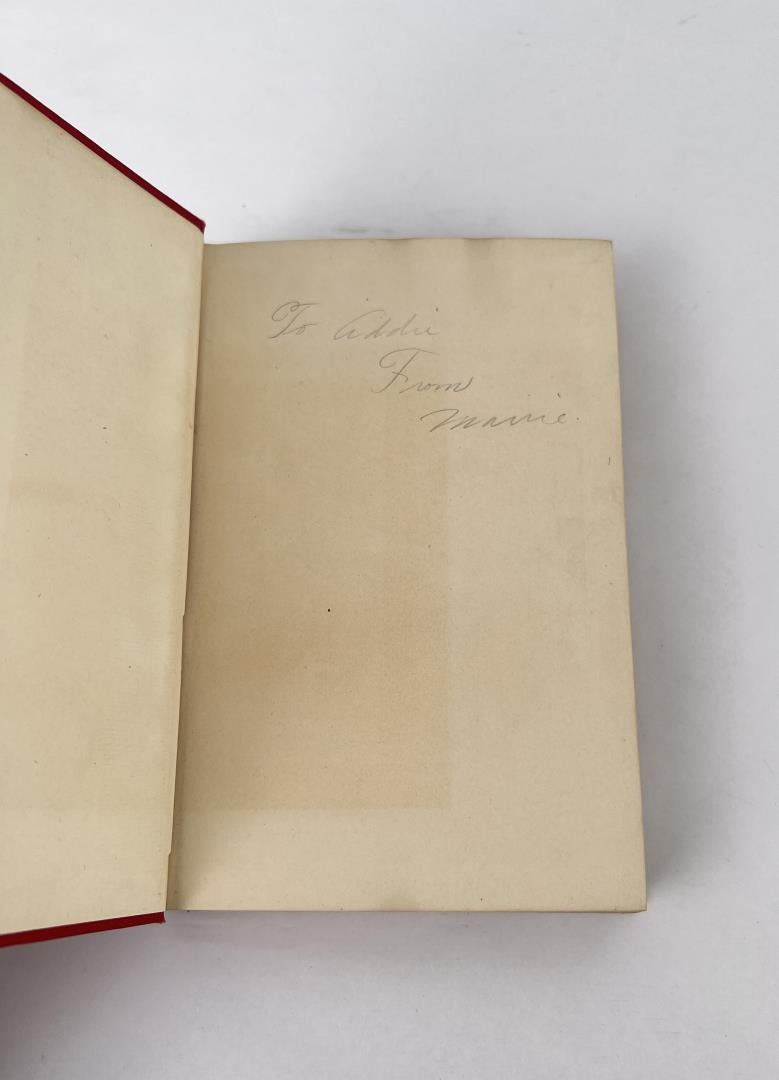 To Addie
From
Mamie.